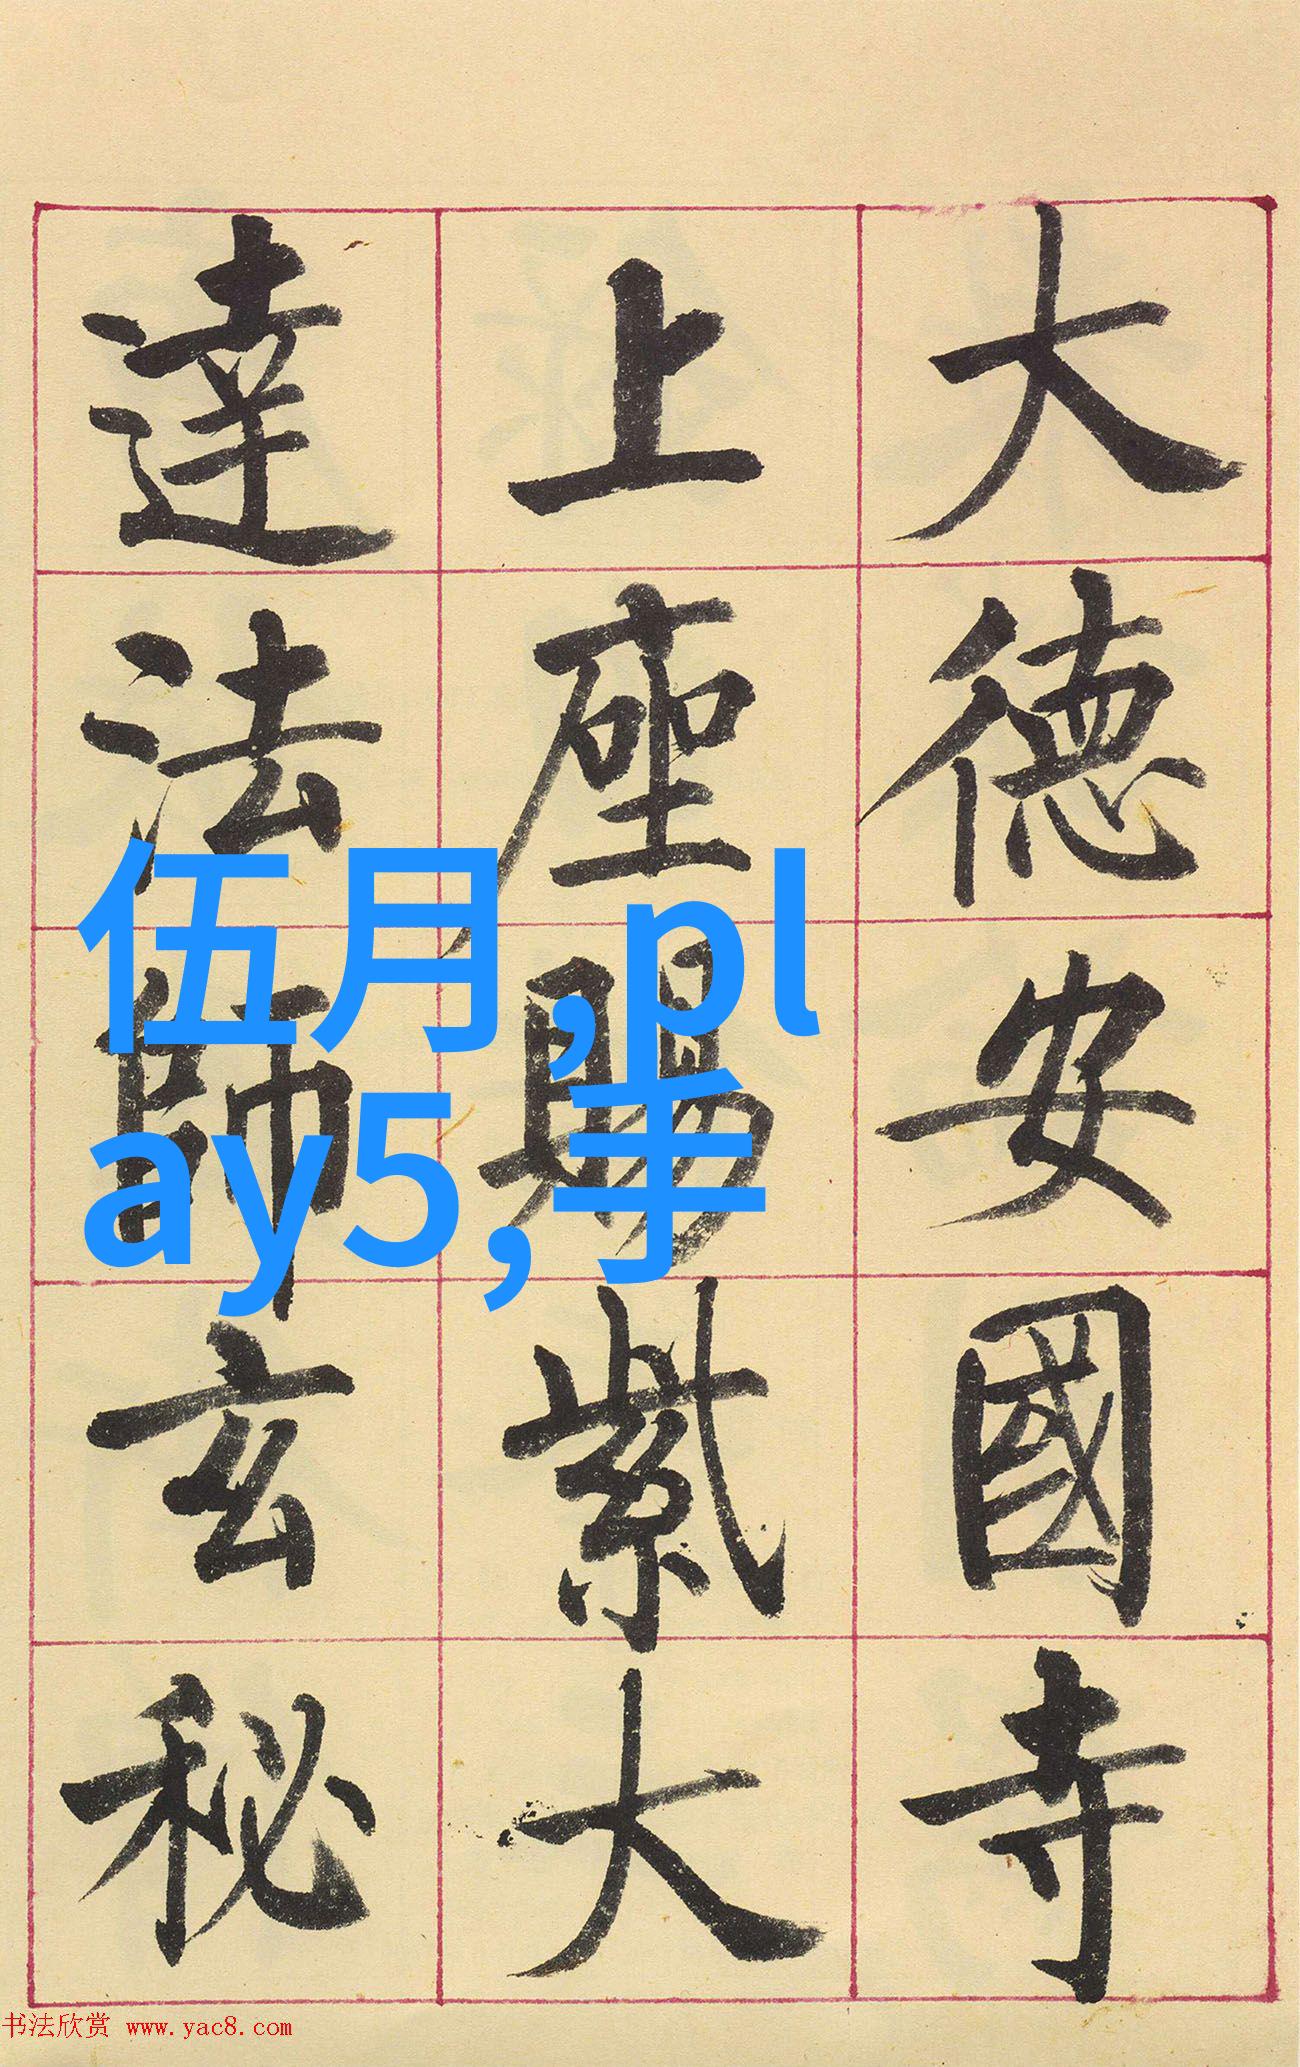 大德安國寺
上座賜紫大
達法師玄秘
伍月,pl
ay5,丰
书法欣赏 www.yac8.com